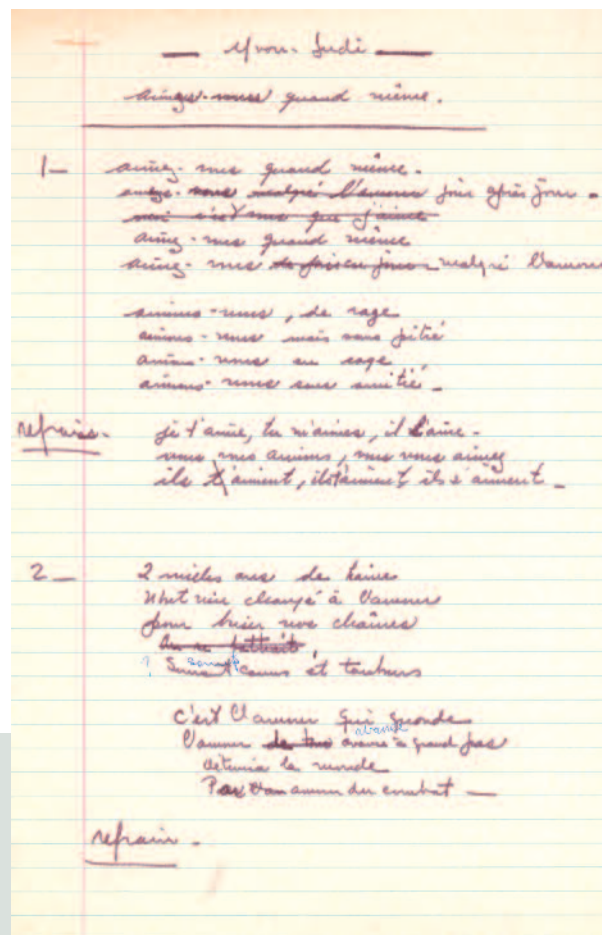 — Yvon-Judi —
aimez-nous quand même.
1— aimez-nous quand même.
aimez-nous malgré l'amour jour après jour.
que j'aime
aimez-nous quand même
aimez-nous malgré l'amour
aimons-nous, de rage
aimons-nous mais sans pitié
aimons-nous en cage
aimons-nous sans amitié.
refrain. je t'aime, tu m'aimes, il t'aime.
vous nous aimons, nous vous aimez
ils t'aiment, ils t'aiment, ils s'aiment.
2— 2 milles ans de haine
N'ont rien changé à l'amour
pour briser nos chaînes
? sommes et tambours
c'est l'amour qui gronde
avance
l'amour avance à grand pas
détruira le monde
Par l'amour du combat —
refrain.